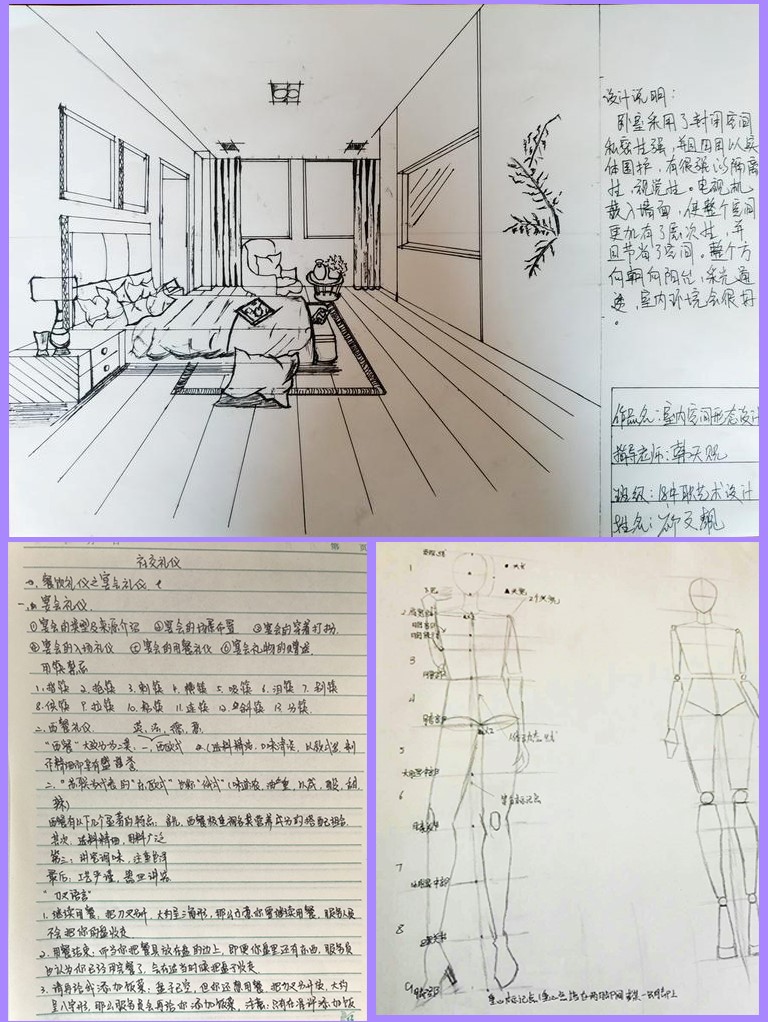 设计说明：
卧室采用了封闭空间
私密性强，并且四周以实
体围护，有很强的隔离
性、视觉性。电视机
载入墙面，使整个空间
更加有了层次性，并
且节省了空间。整个方
向朝向阳台，采光通
透，室内环境会很好
。
作品名：室内空间形态设计
指导老师：韩天
班级：18中职艺术设计
姓名：
社交礼仪
餐饮礼仪之宴会礼仪
一、宴会礼仪
①宴会的类型及桌源介绍 ②宴会的场景布置 ③宴会的穿着打扮
④宴会的入场礼仪 ⑤宴会的用餐礼仪 ⑥宴会礼物的赠送
用筷禁忌
1. 筷 2. 筷 3. 刺筷 4. 横筷 5. 吸筷 6. 泪筷 7. 别筷
8. 供筷 9. 拉筷 10. 粘筷 11. 连筷 12. 斜筷 13. 分筷
二、西餐礼仪 英、法、德、意
"西餐"大致分为二类：一、西欧式 (选料精治，口味清淡，以款式多，制
作精细而享有盛誉
二、"苏联为代表的"东欧式"也称"俄式"(味道浓，油重，以咸，酸，甜
辣)
西餐有以下几个显著的特点：首先，西餐极重视各类营养成分的搭配组合
其次：选料精细，用料广泛
第三：讲究调味，注重色泽
最后：工艺严谨，器皿讲究
"刀叉语言"
1. 继续用餐，把刀叉分开，大约呈三角形，那么示意你要继续用餐，服务人员
不会把你的盘收走
2. 用餐结束：而当你把餐具放在盘的边上，即便你盘里还有东西，服务员
也认为你已经用完了，会在适当时候把盘子收走
3. 请再给我添加饭菜：盘子已空，但你还想用餐，把刀叉分开放，大约
呈八字形，那么服务员会再给你添加饭菜，注意：只有在准许添加饭
1
2
3
4
5
6
7
8
9